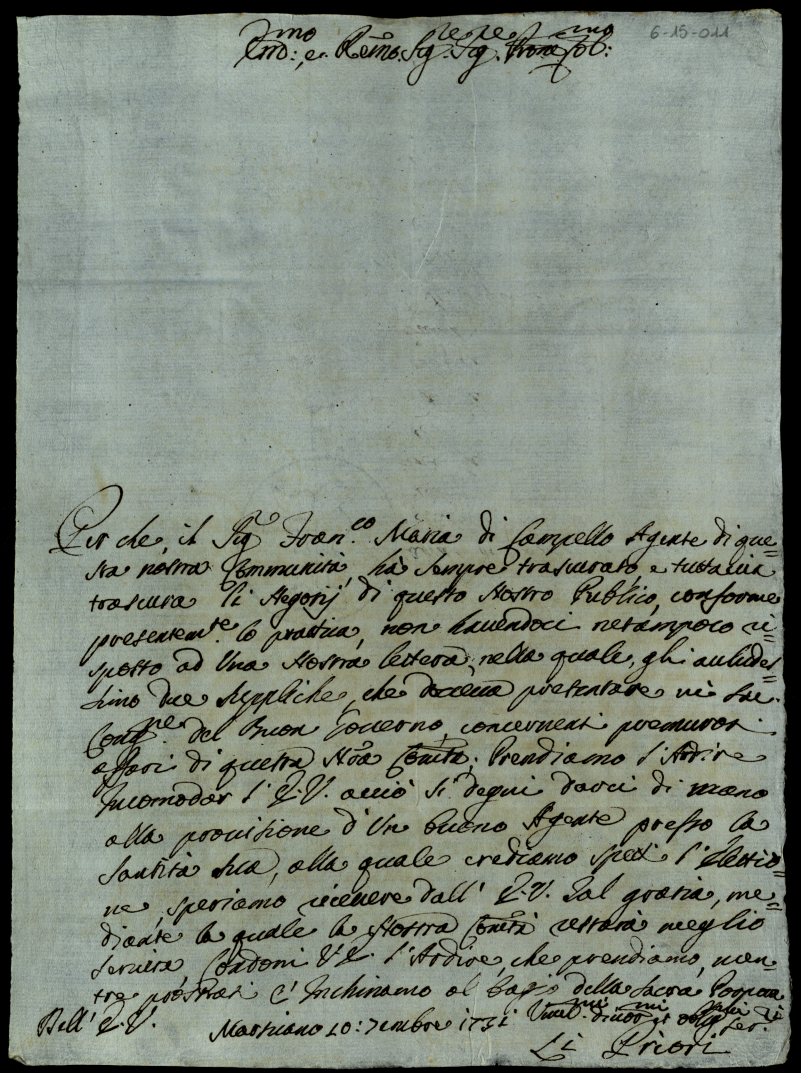 6-15-011
Emo: e Remo Sig.re Sig.re Prone Col:mo
Per che il Sig.r Fran.co Maria di Campello Agente di que=
sta nostra Communità, hà sempre trascurato, e tuttavia
trascura li Negorij di questo Nostro Publico, conforme
presentem.te lo prattica, non havendoci netampoco ri=
sposto ad Una Nostra lettera, nella quale, gli accludes=
simo due suppliche, che doveva presentare in Sac.
Cong.ne del Buon Governo, concernenti premurosi
affari di questa Nr̃a Com̃ità; Prendiamo l'Ardire
Incomodar l'E.V. acciò si degni darci di mano
alla provisione d'Un buono Agente presso la
Santità Sua, alla quale crediamo spetti l'Elettio=
ne, speriamo ricevere dall' E.V. tal gratia, me=
diante la quale la Nostra Com̃ità restarà meglio
servita, Condoni V.E. l'Ardire, che prendiamo, men=
tre prostrati c'Inchiniamo al bagio della Sacra Porpora
Dell' E.V. Marsciano 10: 7embre 1731 Umil.mi divot.mi et oblig.mi Ser.ri
Li Priori